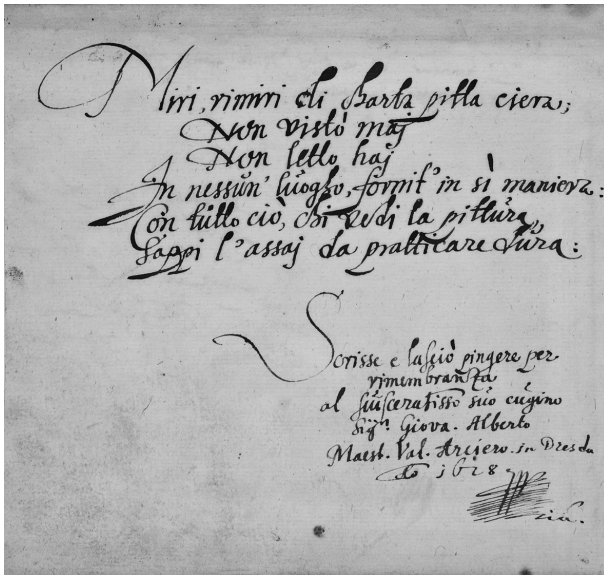 Miri, rimiri di Barba pitta ciera;
Non visto maj
Non letto haj
In nessun' luogho, fornit' in sì maniera:
Con tutto ciò, chi vedi la pittura,
Sappi l'assaj da pratticare dura:
Scrisse e lasciò pingere per
rimembranza
al sùisceratisso suo cugino
Sigʳ. Giova. Alberto
Maest. Val. Arciero in Dresda
1628